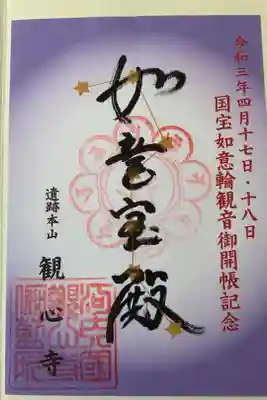 令和三年四月十七日・十八日
国宝如意輪観音御開帳記念
如意宝殿
遺跡本山
観心寺